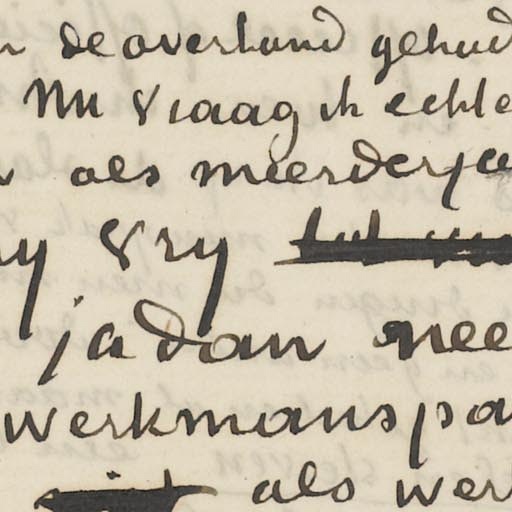 de overhand gehad
Nu vraag ik echte
als meerderja
y vry
ja dan nee
werkmanspa
als wer